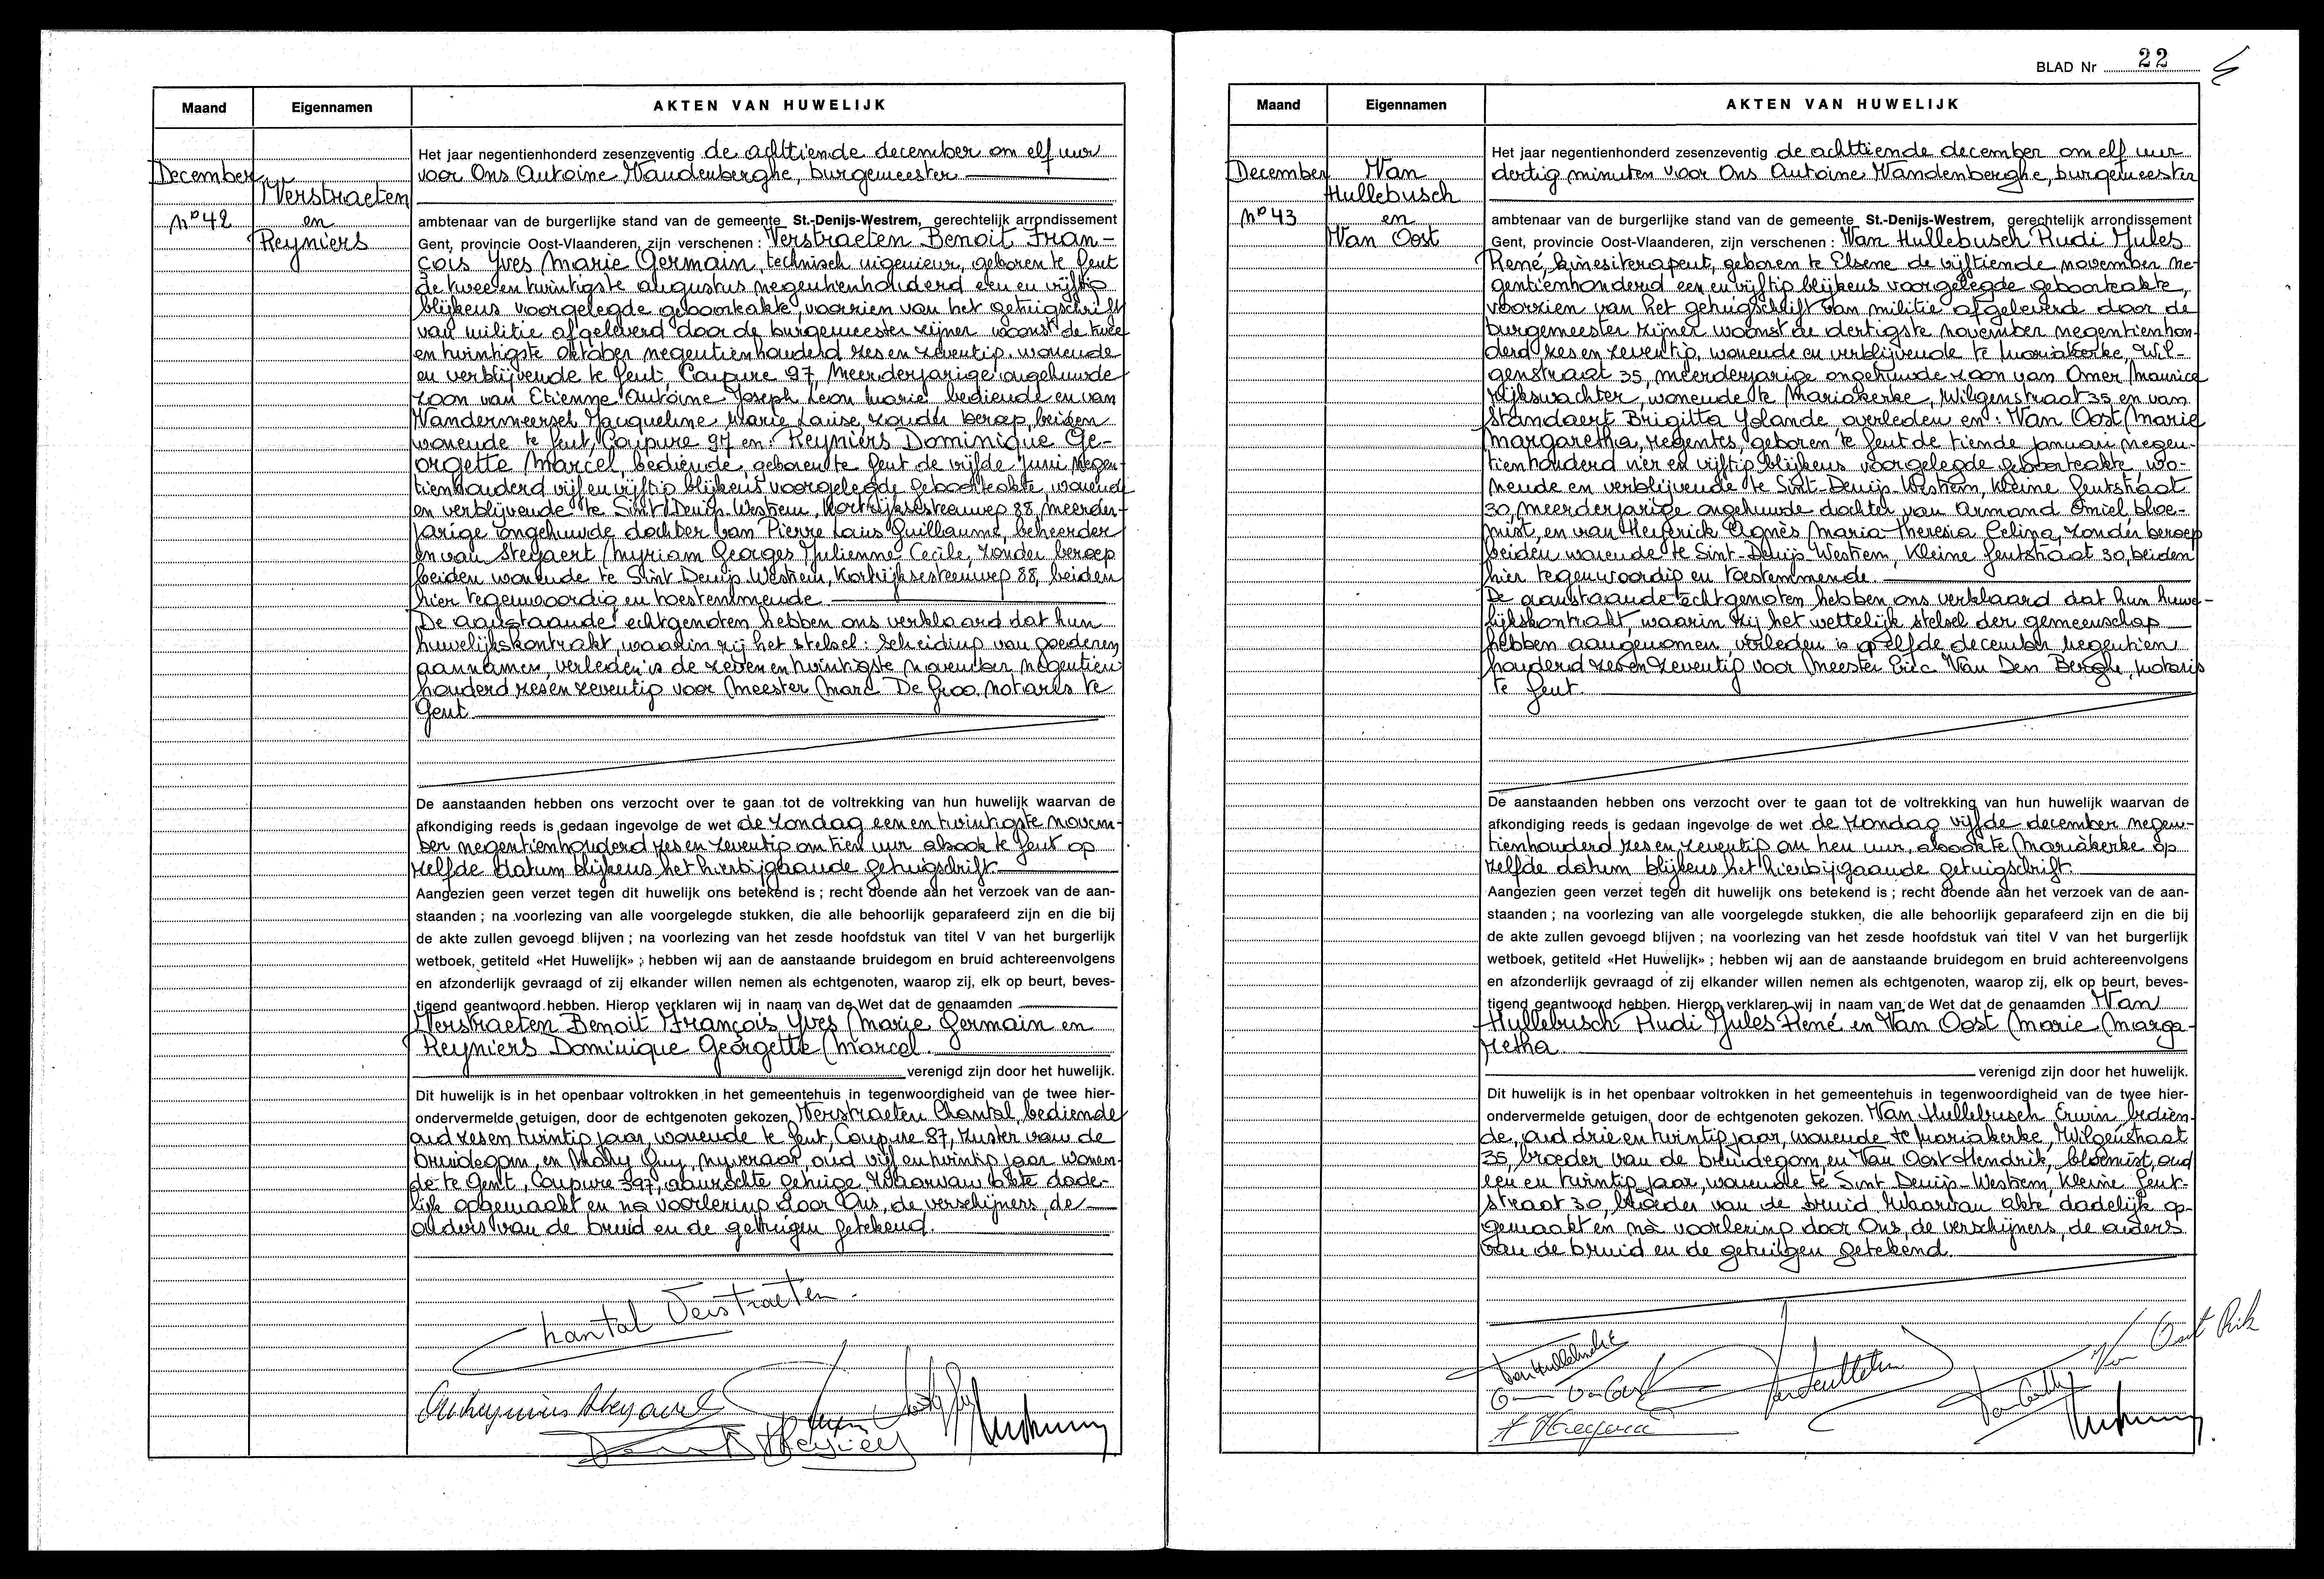 Maand
Eigennamen
AKTEN VAN HUWELIJK
December
Nº 42
Verstraeten
en
Reyniers
Het jaar negentienhonderd zesenzeventig de achttiende december om elf uur
voor Ons Antoine Vandenberghe, burgemeester
ambtenaar van de burgerlijke stand van de gemeente St.-Denijs-Westrem, gerechtelijk arrondissement
Gent, provincie Oost-Vlaanderen, zijn verschenen : Verstraeten Benoit Fran-
çois Yves Marie Germain, technisch ingenieur, geboren te Gent
de tweeen twintigste augustus negentienhonderd een en vijftig
blijkens voorgelegde geboorteakte, voorzien van het getuigschrift
van militie afgeleverd door de burgemeester zijner woonst de twee
en twintigste oktober negentienhonderd zes en zeventig, wonende
en verblijvende te Gent, Coupure 97, meerderjarige ongehuwde
zoon van Etienne Antoine Joseph Leon Marie bediende en van
Vandermeersch Jacqueline Marie Louise, zonder beroep, beiden
wonende te Gent, Coupure 97 en: Reyniers Dominique Ge-
orgette Marcel, bediende, geboren te Gent de vijfde juni negen-
tienhonderd vijf en vijftig blijkens voorgelegde geboorteakte, wonende
en verblijvende te Sint Denijs-Westrem, Kortrijksesteenweg 88, meerder-
jarige ongehuwde dochter van Pierre Louis Guillaume, beheerder
en van Steyaert Myriam Georges Julienne Cecile, zonder beroep
beiden wonende te Sint Denijs-Westrem, Kortrijksesteenweg 88, beiden
hier tegenwoordig en toestemmende
De aanstaande echtgenoten hebben ons verklaard dat hun
huwelijkskontrakt, waarin zij het stelsel: scheiding van goederen
aannamen, verleden is de zeven en twintigste november negentien
honderd zes en zeventig voor Meester Marc De Groo, notaris te
Gent.
De aanstaanden hebben ons verzocht over te gaan tot de voltrekking van hun huwelijk waarvan de
afkondiging reeds is gedaan ingevolge de wet de zondag een en twintigste novem-
ber negentienhonderd zes en zeventig om tien uur alsook te Gent op
zelfde datum blijkens het hierbijgaande getuigschrift.
Aangezien geen verzet tegen dit huwelijk ons betekend is ; recht doende aan het verzoek van de aan-
staanden ; na voorlezing van alle voorgelegde stukken, die alle behoorlijk geparafeerd zijn en die bij
de akte zullen gevoegd blijven ; na voorlezing van het zesde hoofdstuk van titel V van het burgerlijk
wetboek, getiteld «Het Huwelijk» ; hebben wij aan de aanstaande bruidegom en bruid achtereenvolgens
en afzonderlijk gevraagd of zij elkander willen nemen als echtgenoten, waarop zij, elk op beurt, beves-
tigend geantwoord hebben. Hierop verklaren wij in naam van de Wet dat de genaamden
Verstraeten Benoit François Yves Marie Germain en
Reyniers Dominique Georgette Marcel.
verenigd zijn door het huwelijk.
Dit huwelijk is in het openbaar voltrokken in het gemeentehuis in tegenwoordigheid van de twee hier-
ondervermelde getuigen, door de echtgenoten gekozen Verstraeten Chantal, bediende
oud zes en twintig jaar, wonende te Gent, Coupure 87, zuster van de
bruidegom, en Guy, nijveraar, oud vijf en twintig jaar wonen-
de te Gent, Coupure 397, aanzochte getuige. Waarvan akte dade-
lijk opgemaakt en na voorlezing door Ons, de verschijners, de
ouders van de bruid en de getuigen getekend.
Chantal Verstraeten
BLAD Nr 22
Maand
Eigennamen
AKTEN VAN HUWELIJK
December
Nº 43
Van
Hullebusch
en
Van Oost
Het jaar negentienhonderd zesenzeventig de achttiende december om elf uur
dertig minuten voor Ons Antoine Vandenberghe, burgemeester
ambtenaar van de burgerlijke stand van de gemeente St.-Denijs-Westrem, gerechtelijk arrondissement
Gent, provincie Oost-Vlaanderen, zijn verschenen : Van Hullebusch Rudi Jules
René, kinesiterapeut, geboren te Elsene de vijftiende november ne-
gentienhonderd een en vijftig blijkens voorgelegde geboorteakte,
voorzien van het getuigschrift van militie afgeleverd door de
burgemeester zijner woonst de dertigste november negentienhon-
derd zes en zeventig, wonende en verblijvende te Mariakerke, Wil-
genstraat 35, meerderjarige ongehuwde zoon van Omer Maurice
rijkswachter, wonende te Mariakerke, Wilgenstraat 35 en van
Standaert Brigitta Yolande overleden en: Van Oost Marie
Margaretha, regentes, geboren te Gent de tiende januari negen-
tienhonderd vier en vijftig blijkens voorgelegde geboorteakte, wo-
nende en verblijvende te Sint-Denijs-Westrem, Kleine Gentstraat
30, meerderjarige ongehuwde dochter van Armand Emiel bloe-
mist, en van Agnès Maria-Theresia Celina, zonder beroep
beiden wonende te Sint-Denijs-Westrem, Kleine Gentstraat 30, beiden
hier tegenwoordig en toestemmende.
De aanstaande echtgenoten hebben ons verklaard dat hun huwe-
lijkskontrakt, waarin zij het wettelijk stelsel der gemeenschap
hebben aangenomen, verleden is op elfde december negentien
honderd zes en zeventig voor Meester Eric Van Den Berghe, notaris
te Gent.
De aanstaanden hebben ons verzocht over te gaan tot de voltrekking van hun huwelijk waarvan de
afkondiging reeds is gedaan ingevolge de wet de zondag vijfde december negen-
tienhonderd zes en zeventig om tien uur, alsook te Mariakerke op
zelfde datum blijkens het hierbijgaande getuigschrift.
Aangezien geen verzet tegen dit huwelijk ons betekend is ; recht doende aan het verzoek van de aan-
staanden ; na voorlezing van alle voorgelegde stukken, die alle behoorlijk geparafeerd zijn en die bij
de akte zullen gevoegd blijven ; na voorlezing van het zesde hoofdstuk van titel V van het burgerlijk
wetboek, getiteld «Het Huwelijk» ; hebben wij aan de aanstaande bruidegom en bruid achtereenvolgens
en afzonderlijk gevraagd of zij elkander willen nemen als echtgenoten, waarop zij, elk op beurt, beves-
tigend geantwoord hebben. Hierop verklaren wij in naam van de Wet dat de genaamden Van
Hullebusch Rudi Jules René en Van Oost Marie Marga-
retha
verenigd zijn door het huwelijk.
Dit huwelijk is in het openbaar voltrokken in het gemeentehuis in tegenwoordigheid van de twee hier-
ondervermelde getuigen, door de echtgenoten gekozen. Van Hullebusch Erwin, bedien-
de, oud drie en twintig jaar, wonende te Mariakerke, Wilgenstraat
35, broeder van de bruidegom, en Van Oost Hendrik, bloemist, oud
een en twintig jaar, wonende te Sint Denijs-Westrem, Kleine Gent-
straat 30, broeder van de bruid. Waarvan akte dadelijk op-
gemaakt en na voorlezing door Ons, de verschijners, de ouders
van de bruid en de getuigen getekend.
Van Oost Rik